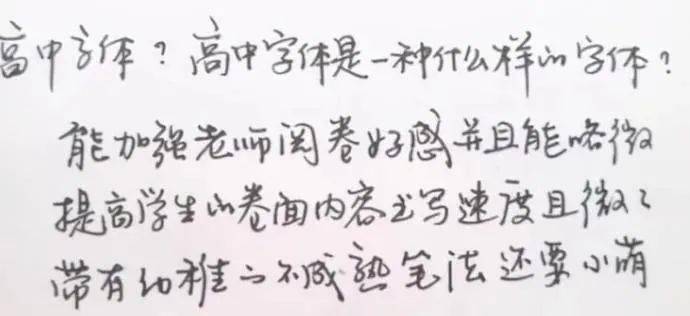 高中字体？高中字体是一种什么样的字体？
能加强老师阅卷好感并且能略微
提高学生的卷面内容书写速度且微々
带有幼稚与不成熟笔法还要小萌